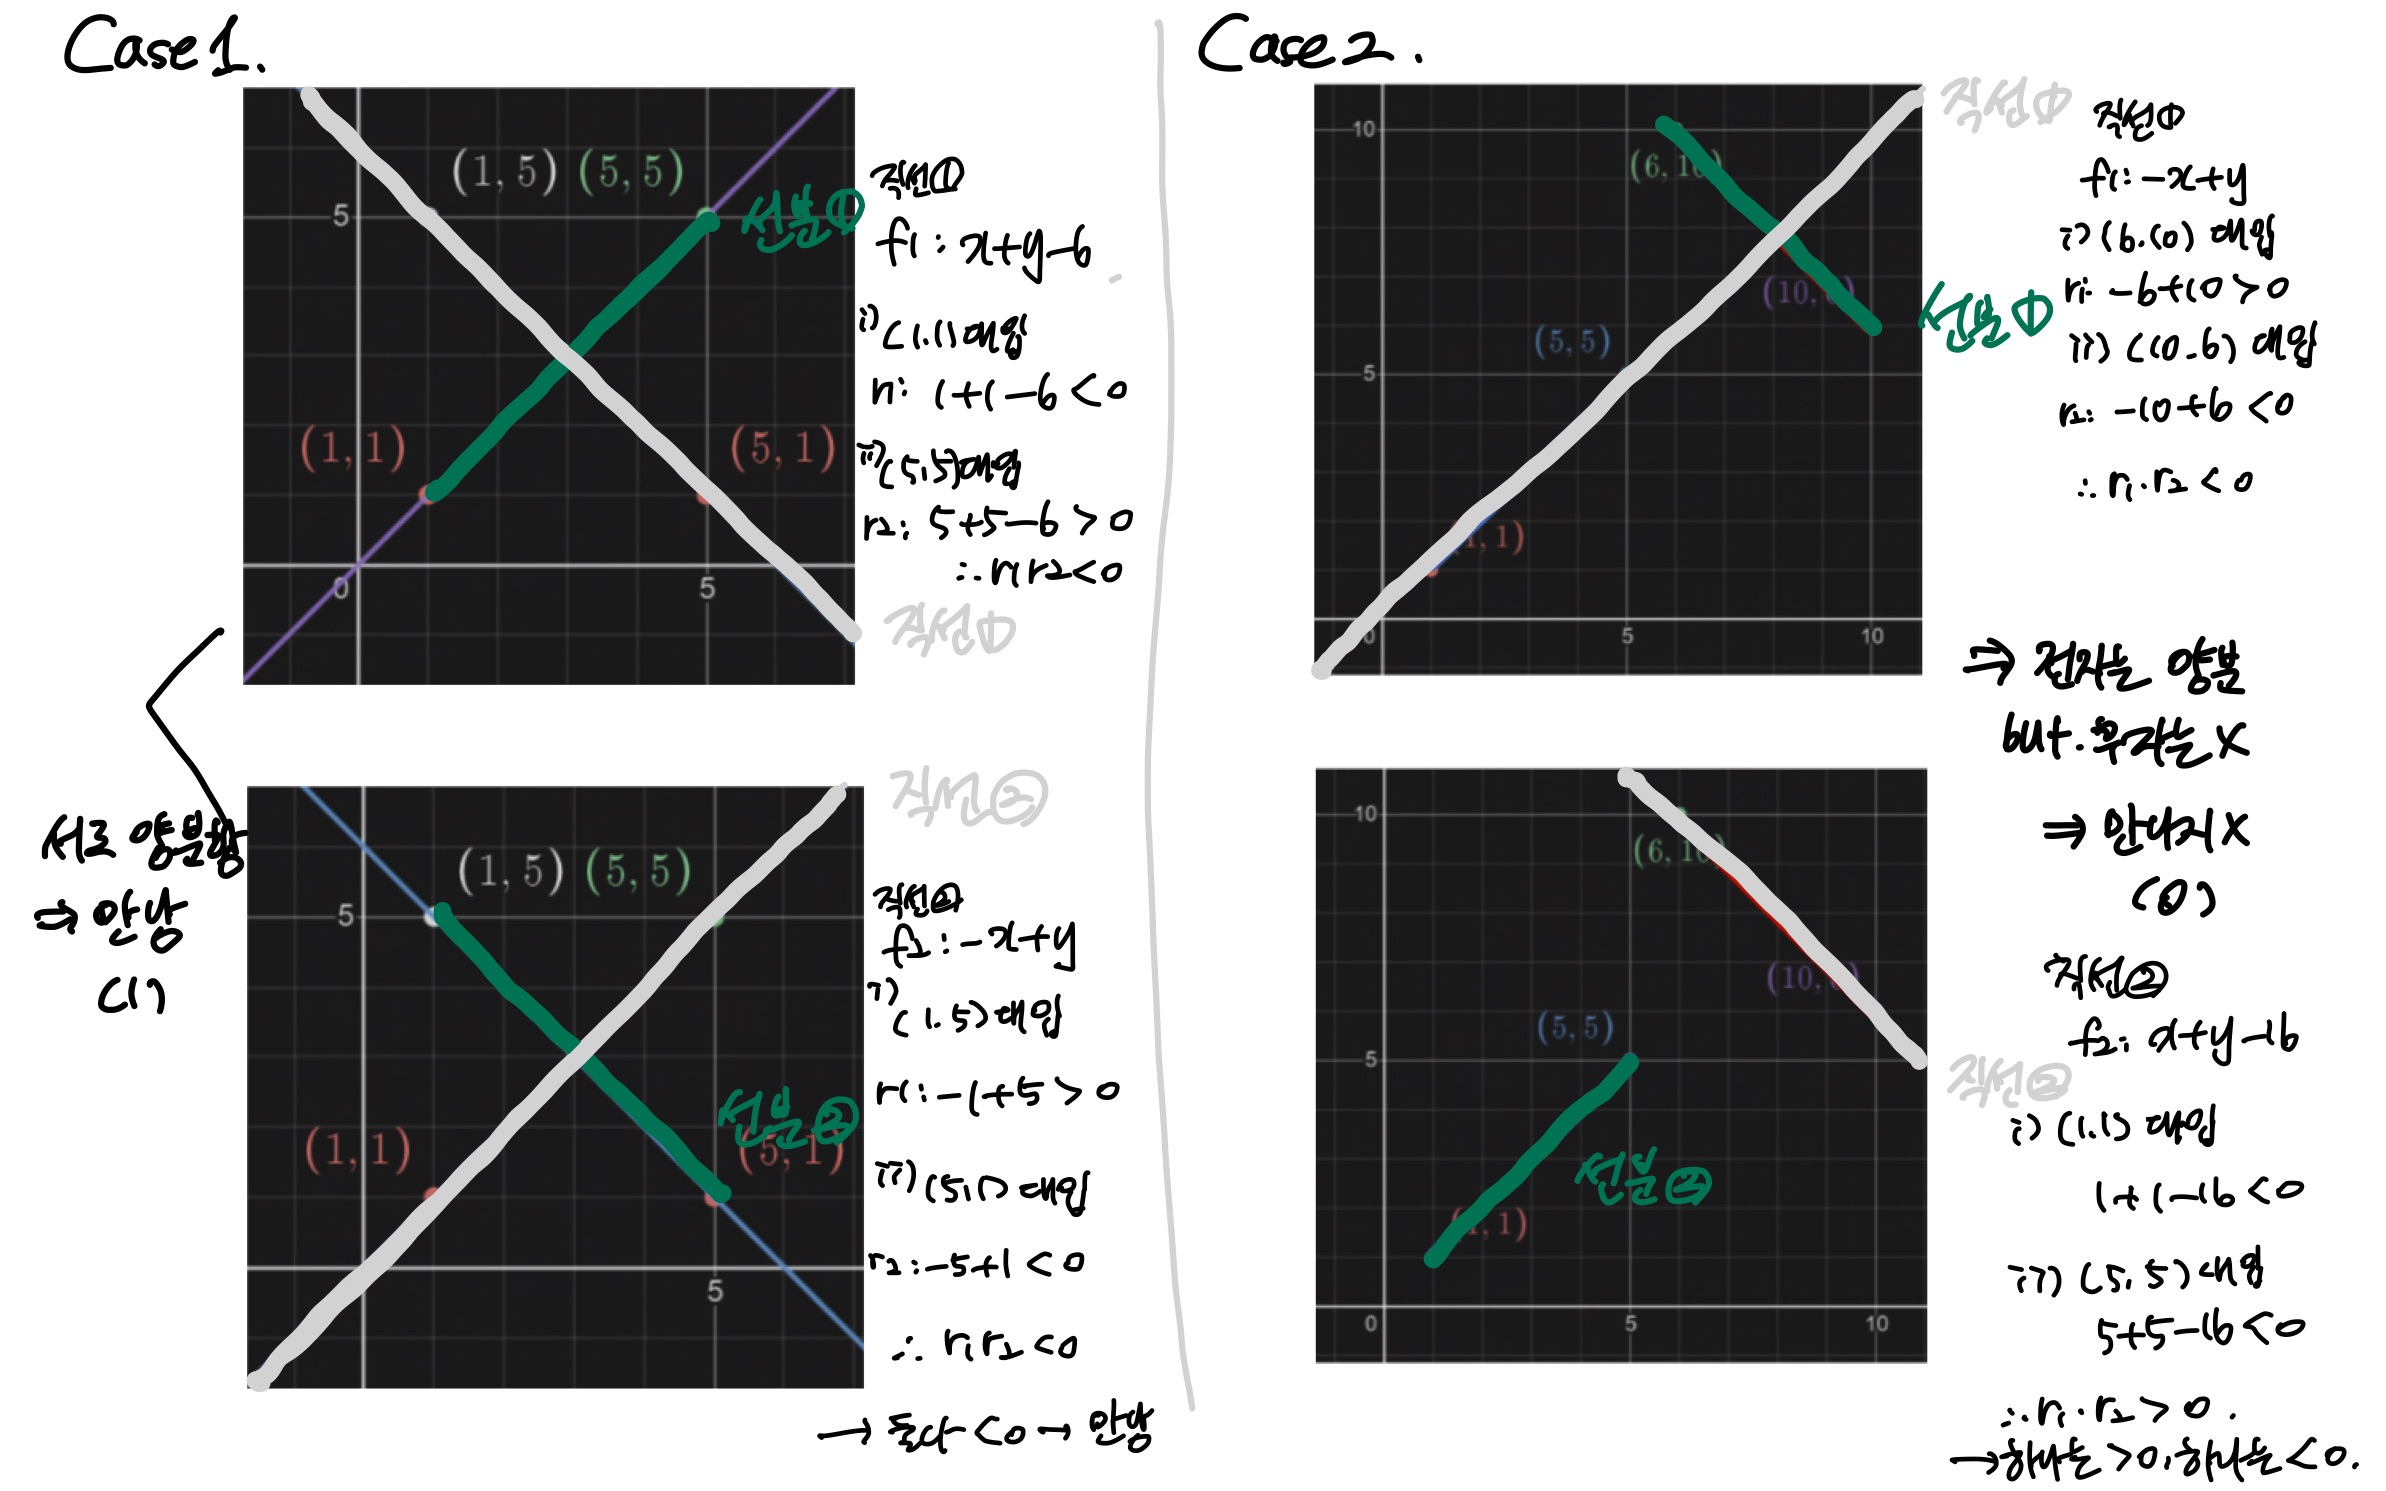 Case 1.
(1, 5) (5, 5)
5
선분①
(1, 1)
(5, 1)
0
5
직선①
f1: x+y-6
i) (1.1) 대입
r1: 1+1-6 <0
ii) (5,5) 대입
r2: 5+5-6 >0
∴ r1r2<0
직선①
직선②
(1, 5) (5, 5)
5
선분②
(1, 1)
(5, 1)
5
서로 양분함
⇒ 만남
(1)
직선②
f2: -x+y
i)
(1.5) 대입
r1: -1+5 > 0
ii) (5,1) 대입
r2: -5+1 < 0
∴ r1r2 <0
→ 둘다 <0 → 만남
Case 2.
직선①
10
(6, 10)
(10, 6)
선분①
(5, 5)
5
(1, 1)
0
5
10
직선①
f1: -x+y
i) (6.10) 대입
r1: -6+10 > 0
ii) (10.6) 대입
r2: -10+6 <0
∴ r1.r2 <0
⇒ 전자는 양분
but. 후자는 X
⇒ 만나지 X
(0)
10
(6, 10)
(10, 6)
(5, 5)
5
직선②
선분②
(1, 1)
0
5
10
직선②
f2: x+y-16
i) (1.1) 대입
1+1-16 <0
ii) (5, 5) 대입
5+5-16 <0
∴ r1.r2 >0.
→ 하나는 >0, 하나는 <0.